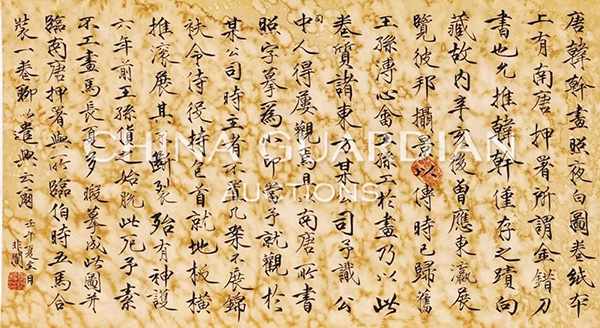 唐韓幹畫照夜白圖卷紙本
上有南唐押署所謂金錯刀
書也允推韓幹僅存之蹟向
藏故內辛亥後曾應東瀛展
覽彼邦攝景以傳時已歸舊
王孫溥心畬王孫工於畫乃以此
卷質諸東方某公司予識公
司中人得屢觀真且南唐所書
照字摹為小印嘗予就觀於
某公司時主者不置几案不展錦
袱令侍役持卷首就地板橫
推滾展其不斷裂殆有神護
六年前王孫貨去始脫此厄予素
不工畫馬長夏多暇摹成此圖并
臨南唐押署與所臨伯時五馬合
裝一卷聊以遣興云爾
壬午夏六月
非闇
CHINA GUARDIAN
AUCTIONS